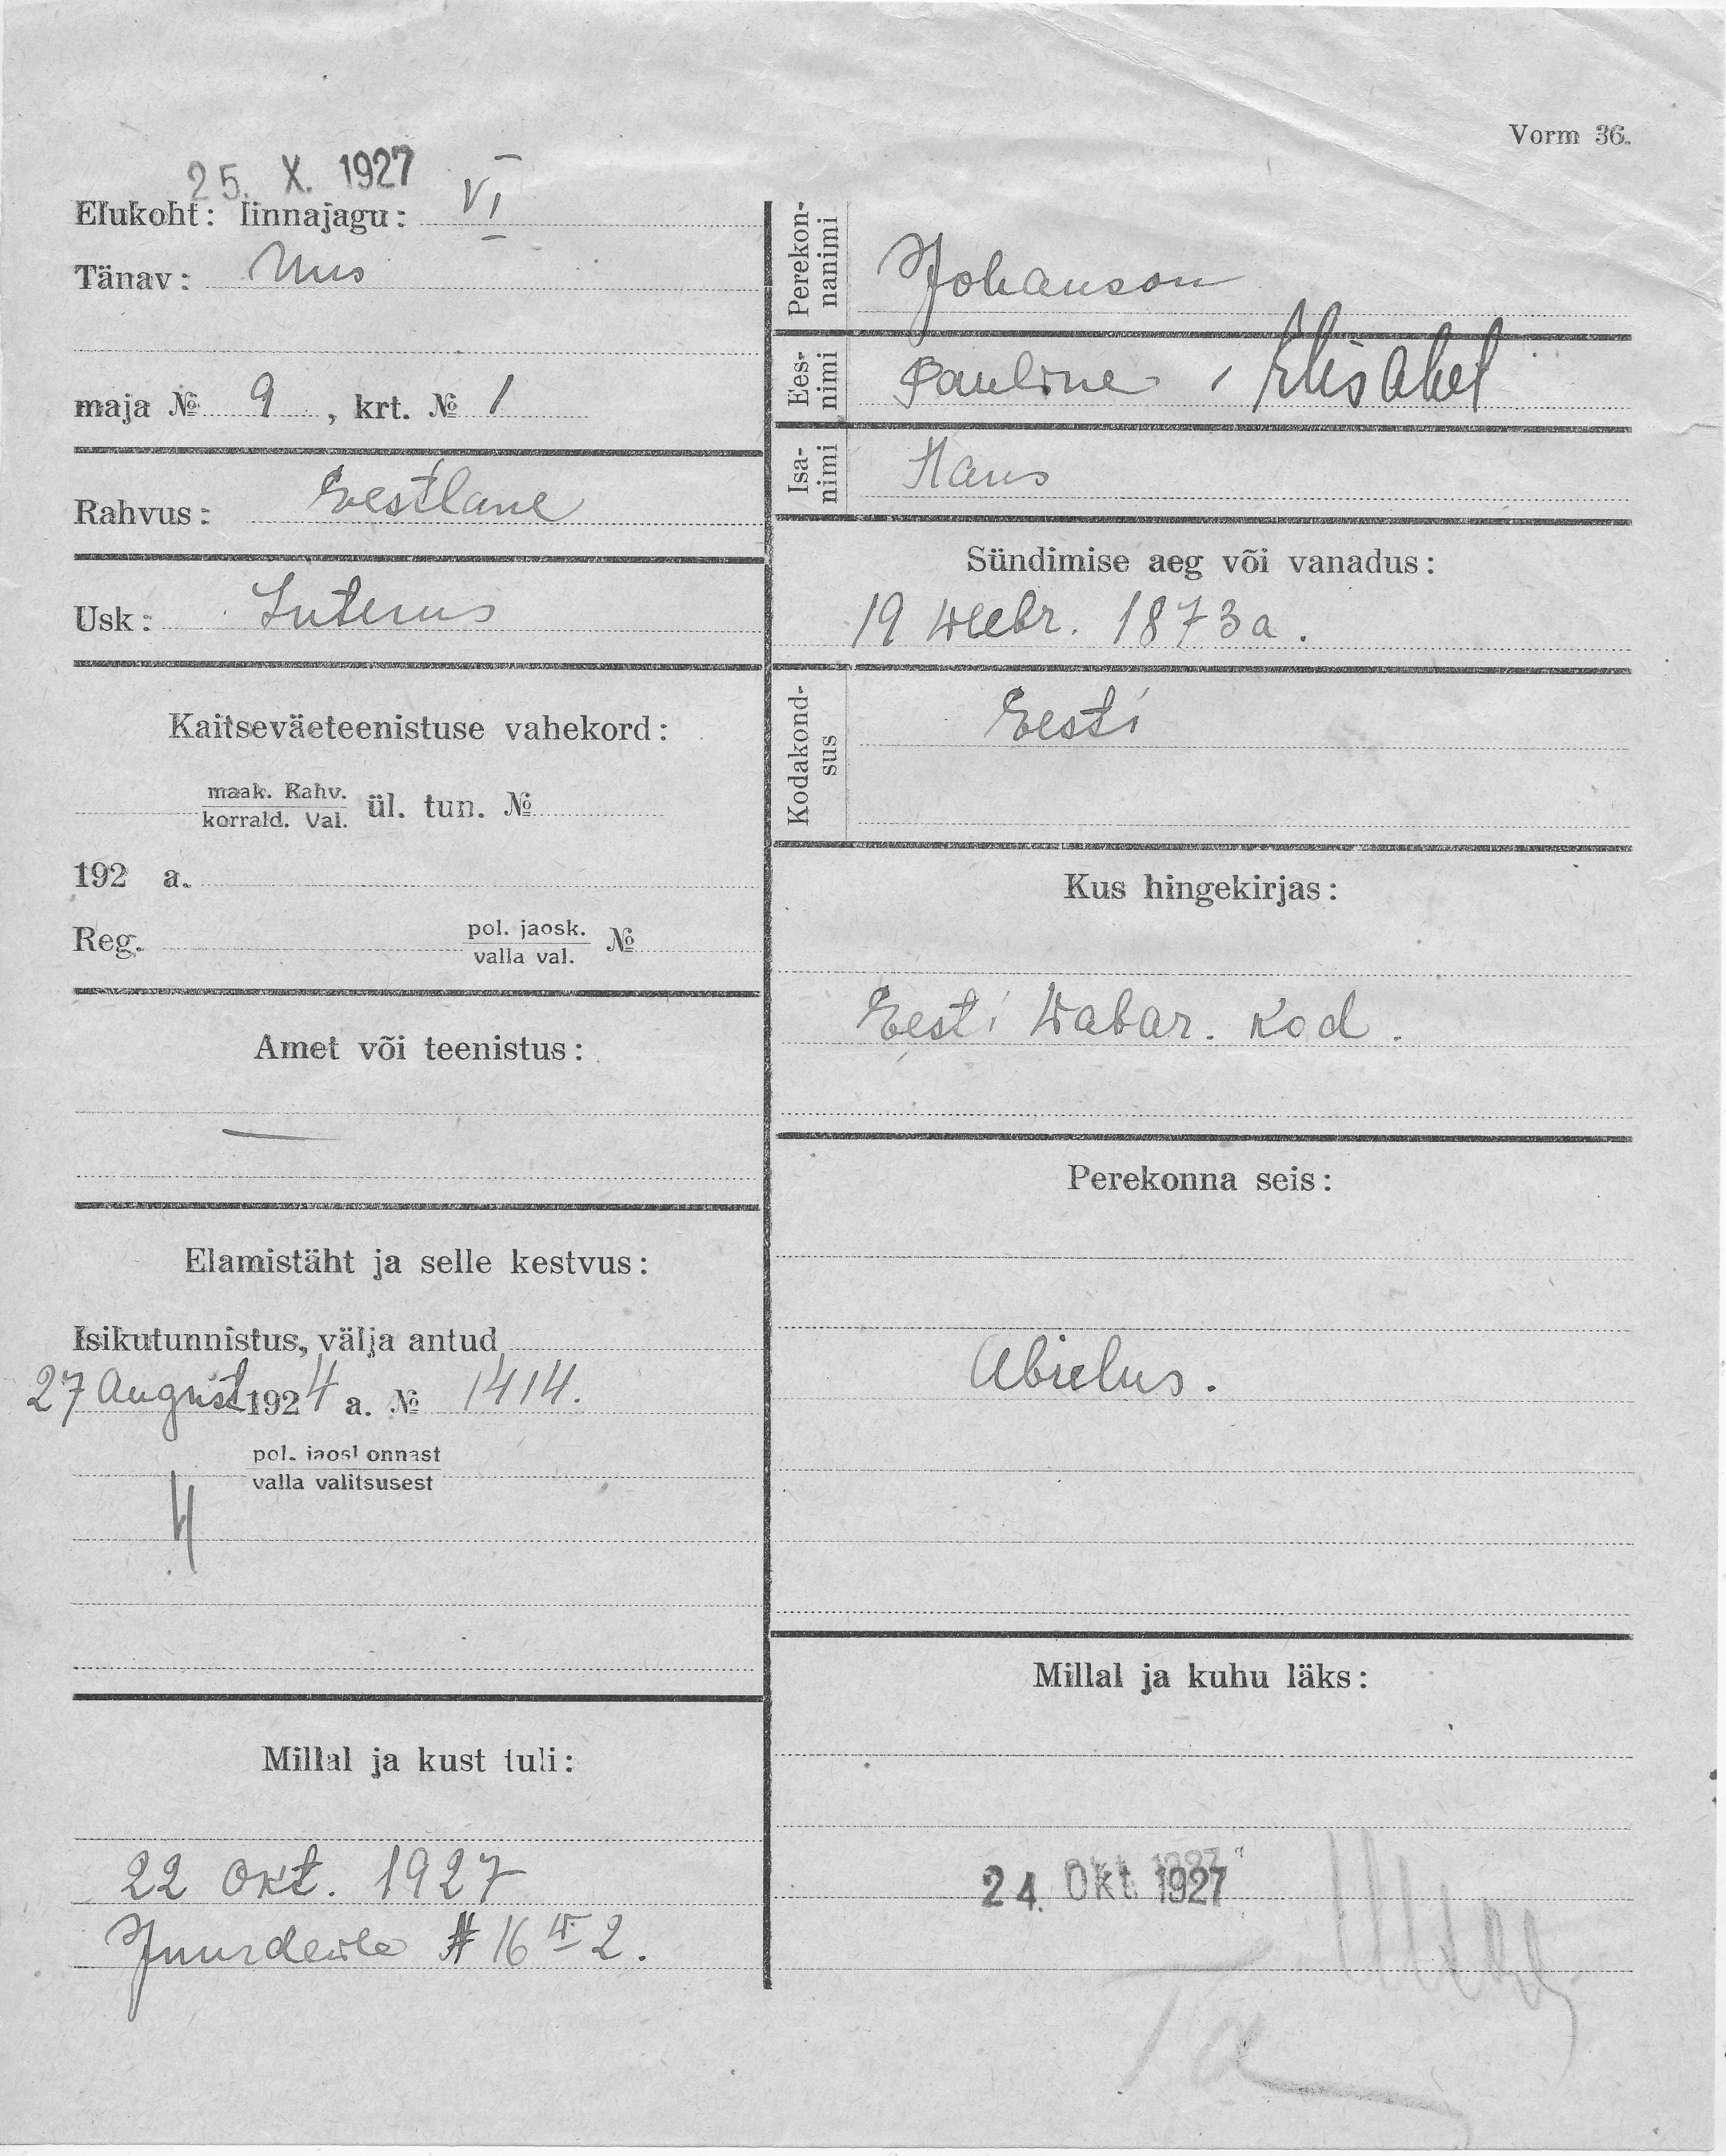 Vorm 36.
25. X. 1927
Elukoht: linnajagu: VI
Tänav: Uus
maja № 9, krt. № 1
Rahvus: Eestlane
Usk: Luterus
Kaitseväeteenistuse vahekord:
maak. Rahv.
korrald. Val. ül. tun. №
192 a.
Reg. pol. jaosk. №
valla val.
Amet või teenistus:
—
Elamistäht ja selle kestvus:
Isikutunnistus, välja antud
27 August 1924 a. № 1414.
pol. jaoskonnast
valla valitsusest
4
Millal ja kust tuli:
22 Okt. 1927
# 16 2.
Perekon-
nanimi Johanson
Ees-
nimi Pauline, Elisabet
Isa-
nimi Hans
Sündimise aeg või vanadus:
19 Weebr. 1873 a.
Kodakond-
sus Eesti
Kus hingekirjas:
Eesti Wabar. Kod.
Perekonna seis:
Abielus.
Millal ja kuhu läks:
24. Okt 1927
Ta